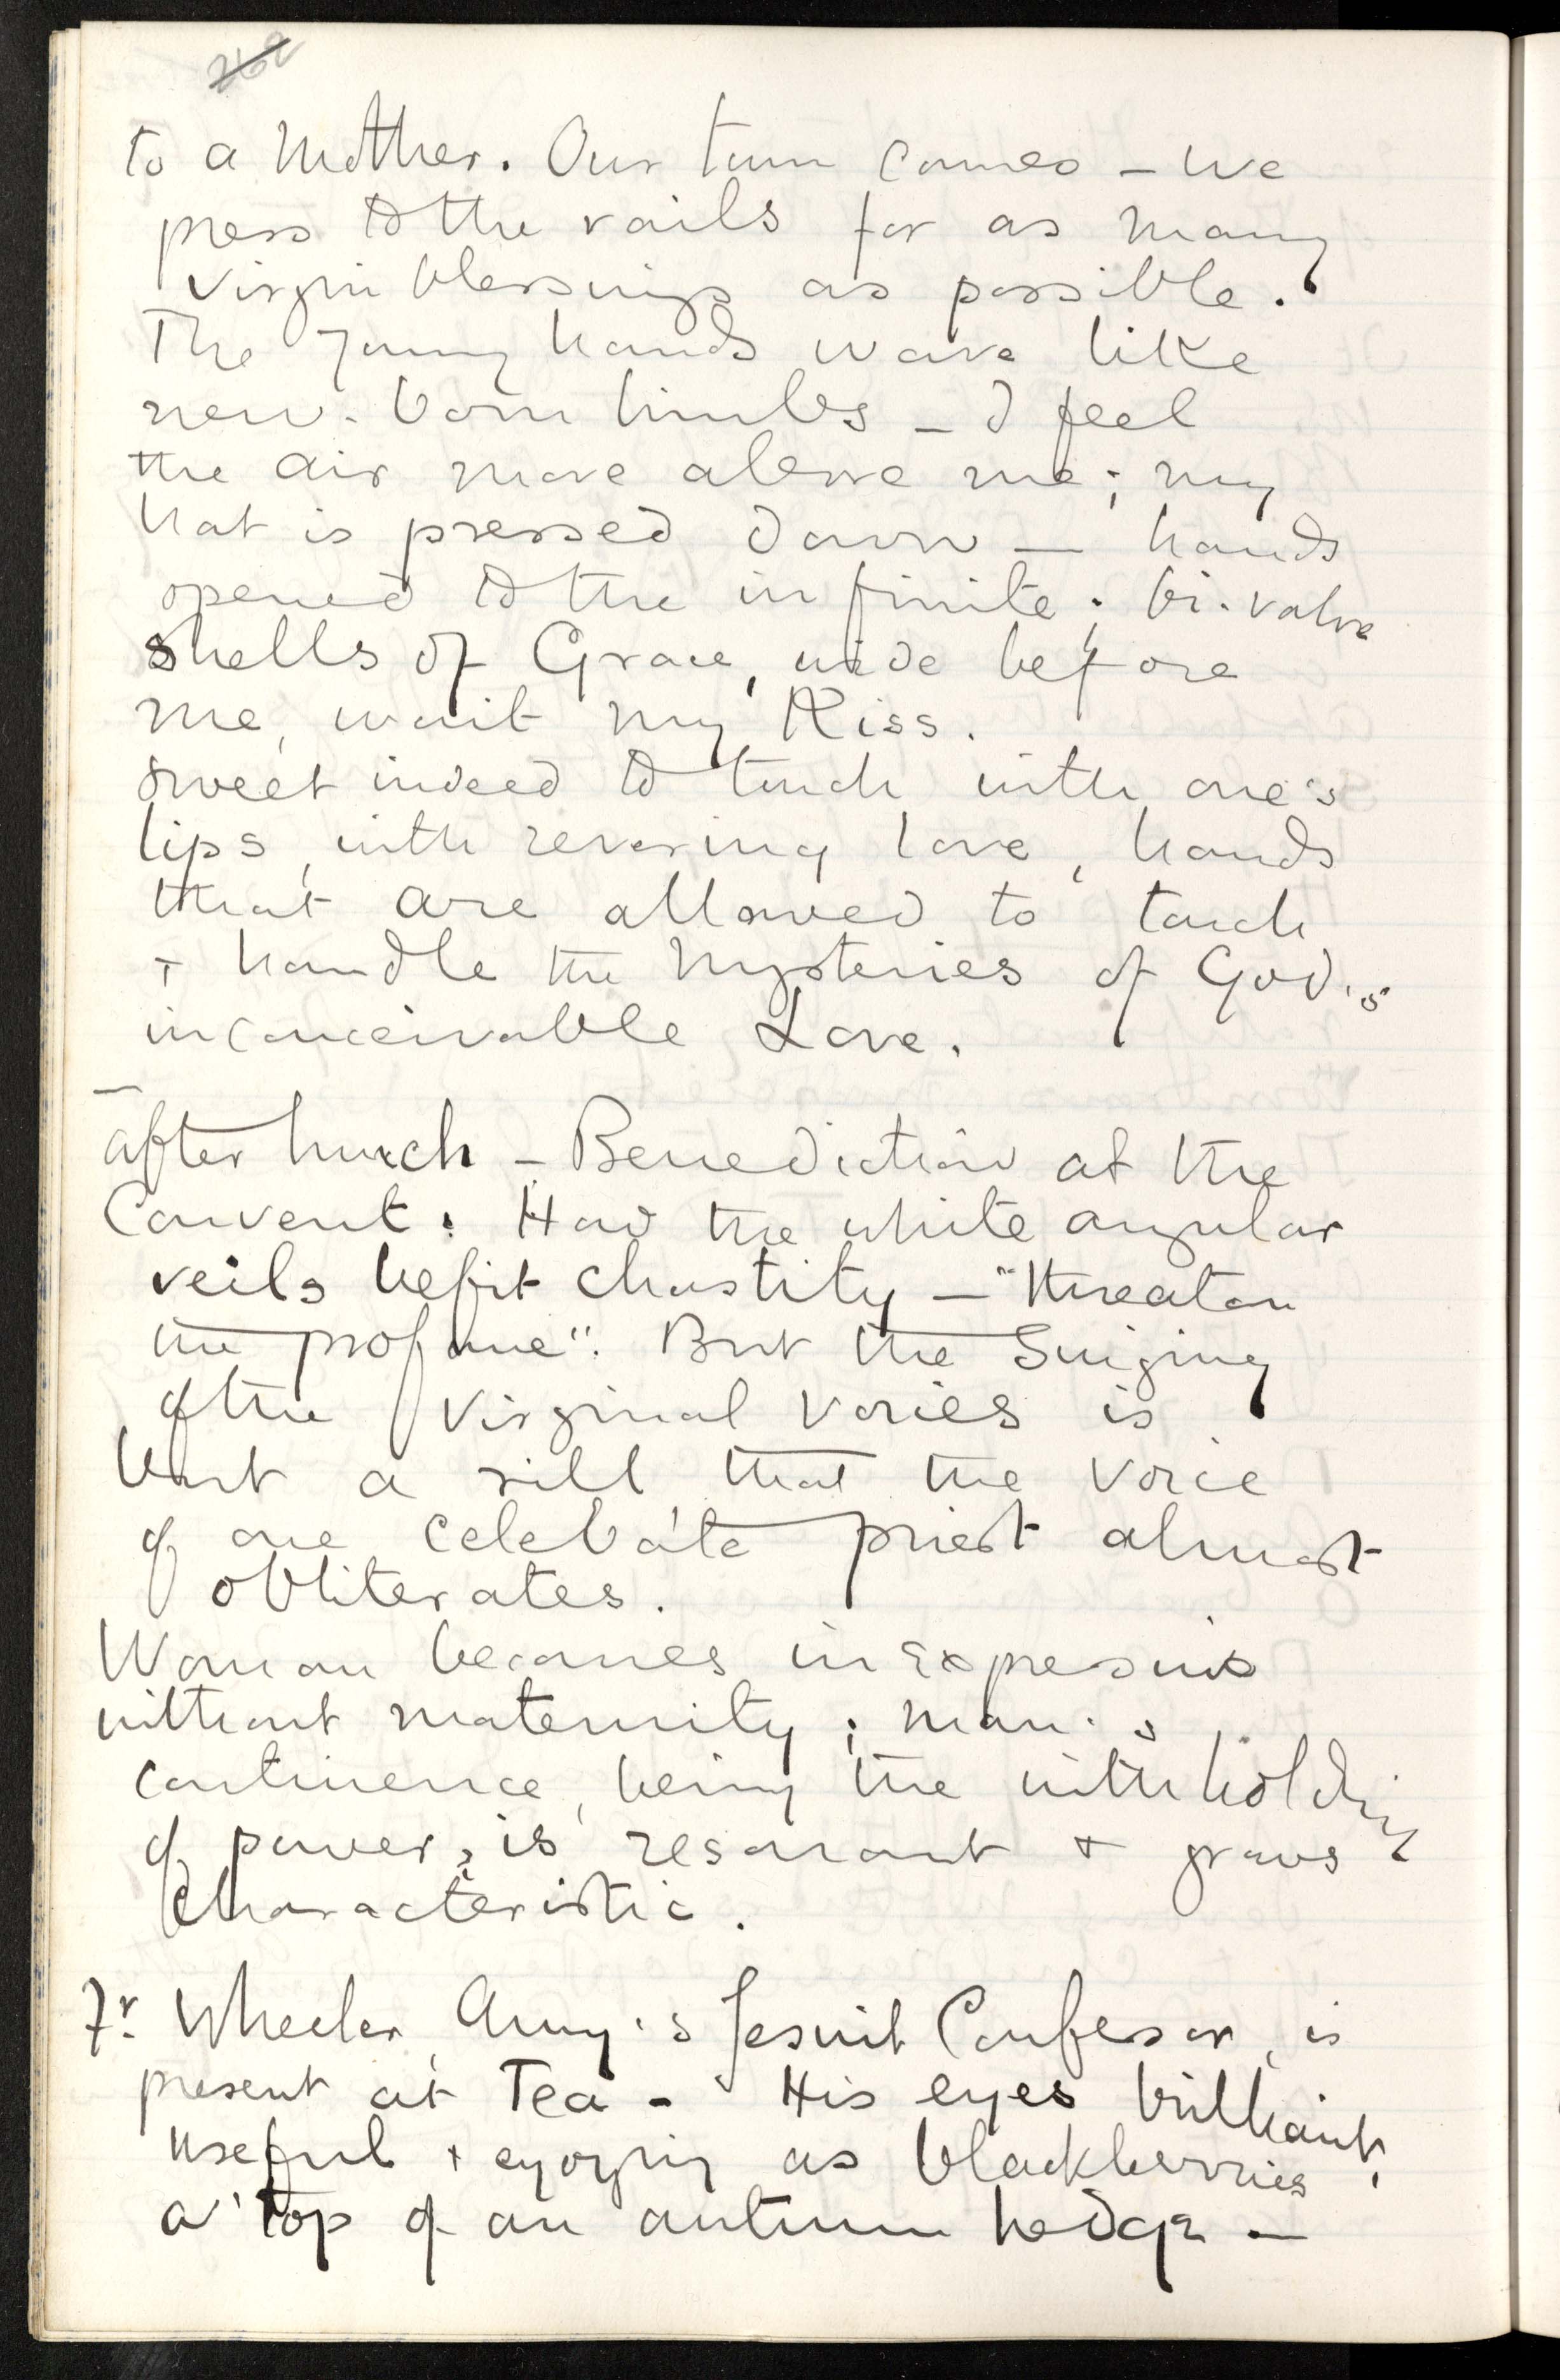 262
to a Mother. Our turn comes – we
press to the rails for as many
Virgin blessings as possible.
The young hands wave like
new-born limbs – I feel
the air move above me; my
hat is pressed down – hands
opened to the infinite; bi-valve
shells of Grace, wide before
me, wait my Kiss.
Sweet indeed to touch with one's
lips, with revering love, hands
that are allowed to touch
+ handle the Mysteries of God's
inconceivable Love.
After lunch – Benediction at the
Convent. How the white angular
veils befit chastity – "threaten
the profane". But the Singing
of the Virginal voices is
but a rill that the voice
of one celebate priest almost
obliterates.
Woman becomes inexpressive
without maternity; man's
continence, being the withholding
of power, is resonant + grows
characteristic.
Fr. Wheeler, Amy's Jesuit Confessor, is
present at Tea – His eyes brilliant,
useful + enjoying as blackberries
a'top of an autumn hedge –